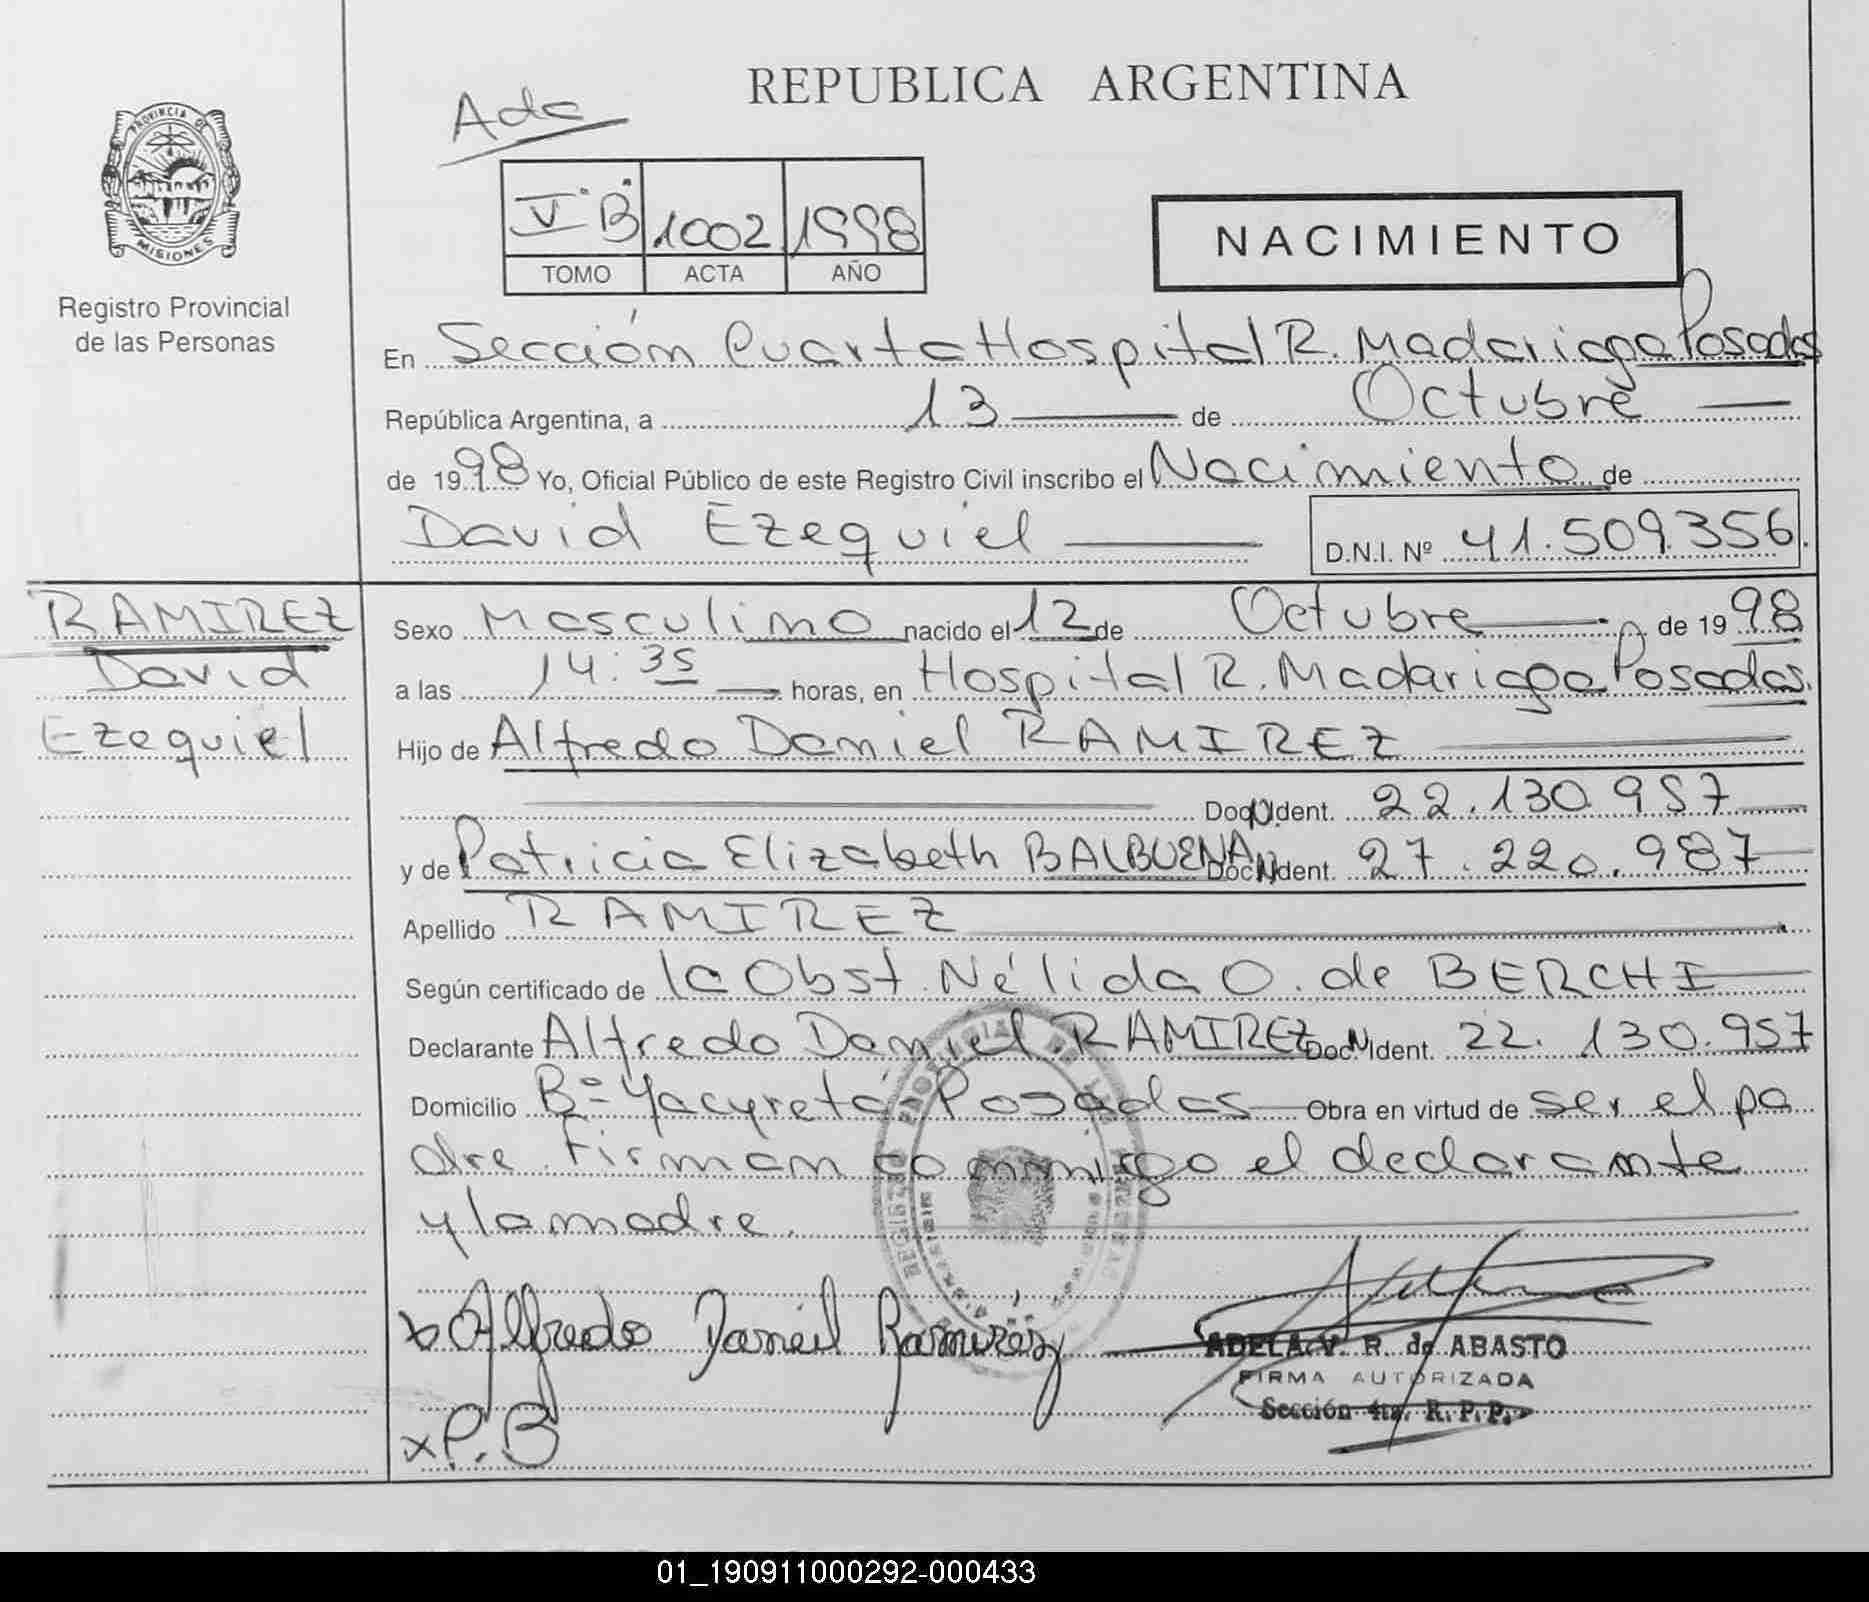 REPUBLICA ARGENTINA
PROVINCIA DE
MISIONES
Registro Provincial
de las Personas
V "B" 1002 1998
TOMO ACTA AÑO
NACIMIENTO
En Sección Cuarta Hospital R. Madariaga Posadas
República Argentina, a 13 de Octubre
de 1998 Yo, Oficial Público de este Registro Civil inscribo el Nacimiento de
David Ezequiel D.N.I. Nº 41.509.356
RAMIREZ
David
Ezequiel
Sexo Masculino nacido el 12 de Octubre de 1998
a las 14:35 horas, en Hospital R. Madariaga Posadas.
Hijo de Alfredo Daniel RAMIREZ
Doc. Ident. 22.130.957
y de Patricia Elizabeth BALBUENA Doc. Ident. 27.220.987
Apellido RAMIREZ
Según certificado de la Obst. Nélida O. de BERCHI
Declarante Alfredo Daniel RAMIREZ Doc. Ident. 22.130.957
Domicilio Bº Yacyretá Posadas Obra en virtud de ser el pa
dre. Firman conmigo el declarante
y la madre.
x Alfredo Daneil Ramirez
ADELA V. R. de ABASTO
FIRMA AUTORIZADA
Sección 4ta. R. P. P.
x P. B
01_190911000292-000433